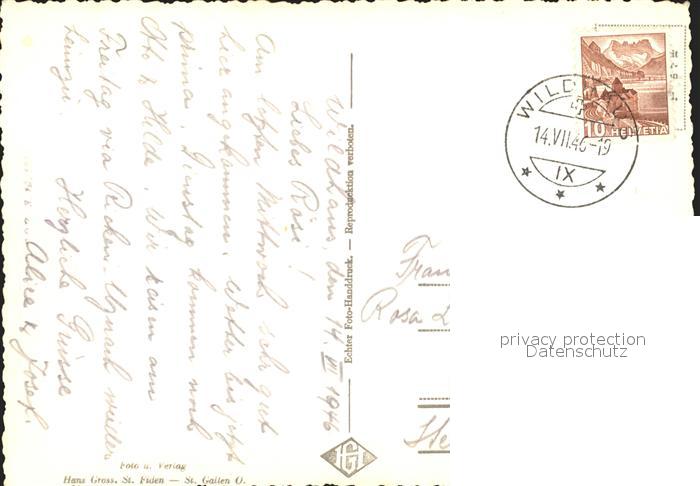 Wildhaus, den 14. VII 1946
Liebes Rösi!
Am letzten Mittwoch sehr gut
hier angekommen. Wetter bis jetzt
prima. Dienstag kommen noch
Otto & Hilde. Wir reisen am
Freitag via Ricken-Uznach wieder
heimzu.
Herzliche Grüsse
Alice & Josef.
Echter Foto-Handdruck. — Reproduktion verboten.
Foto u. Verlag
Hans Gross, St. Fiden — St. Gallen O.
HG
WILDHAUS
14.VII.46-19
IX
10 HELVETIA
Frau
Rosa
privacy protection
Datenschutz